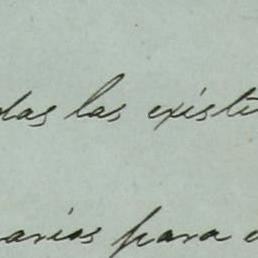 das las existe
arios para